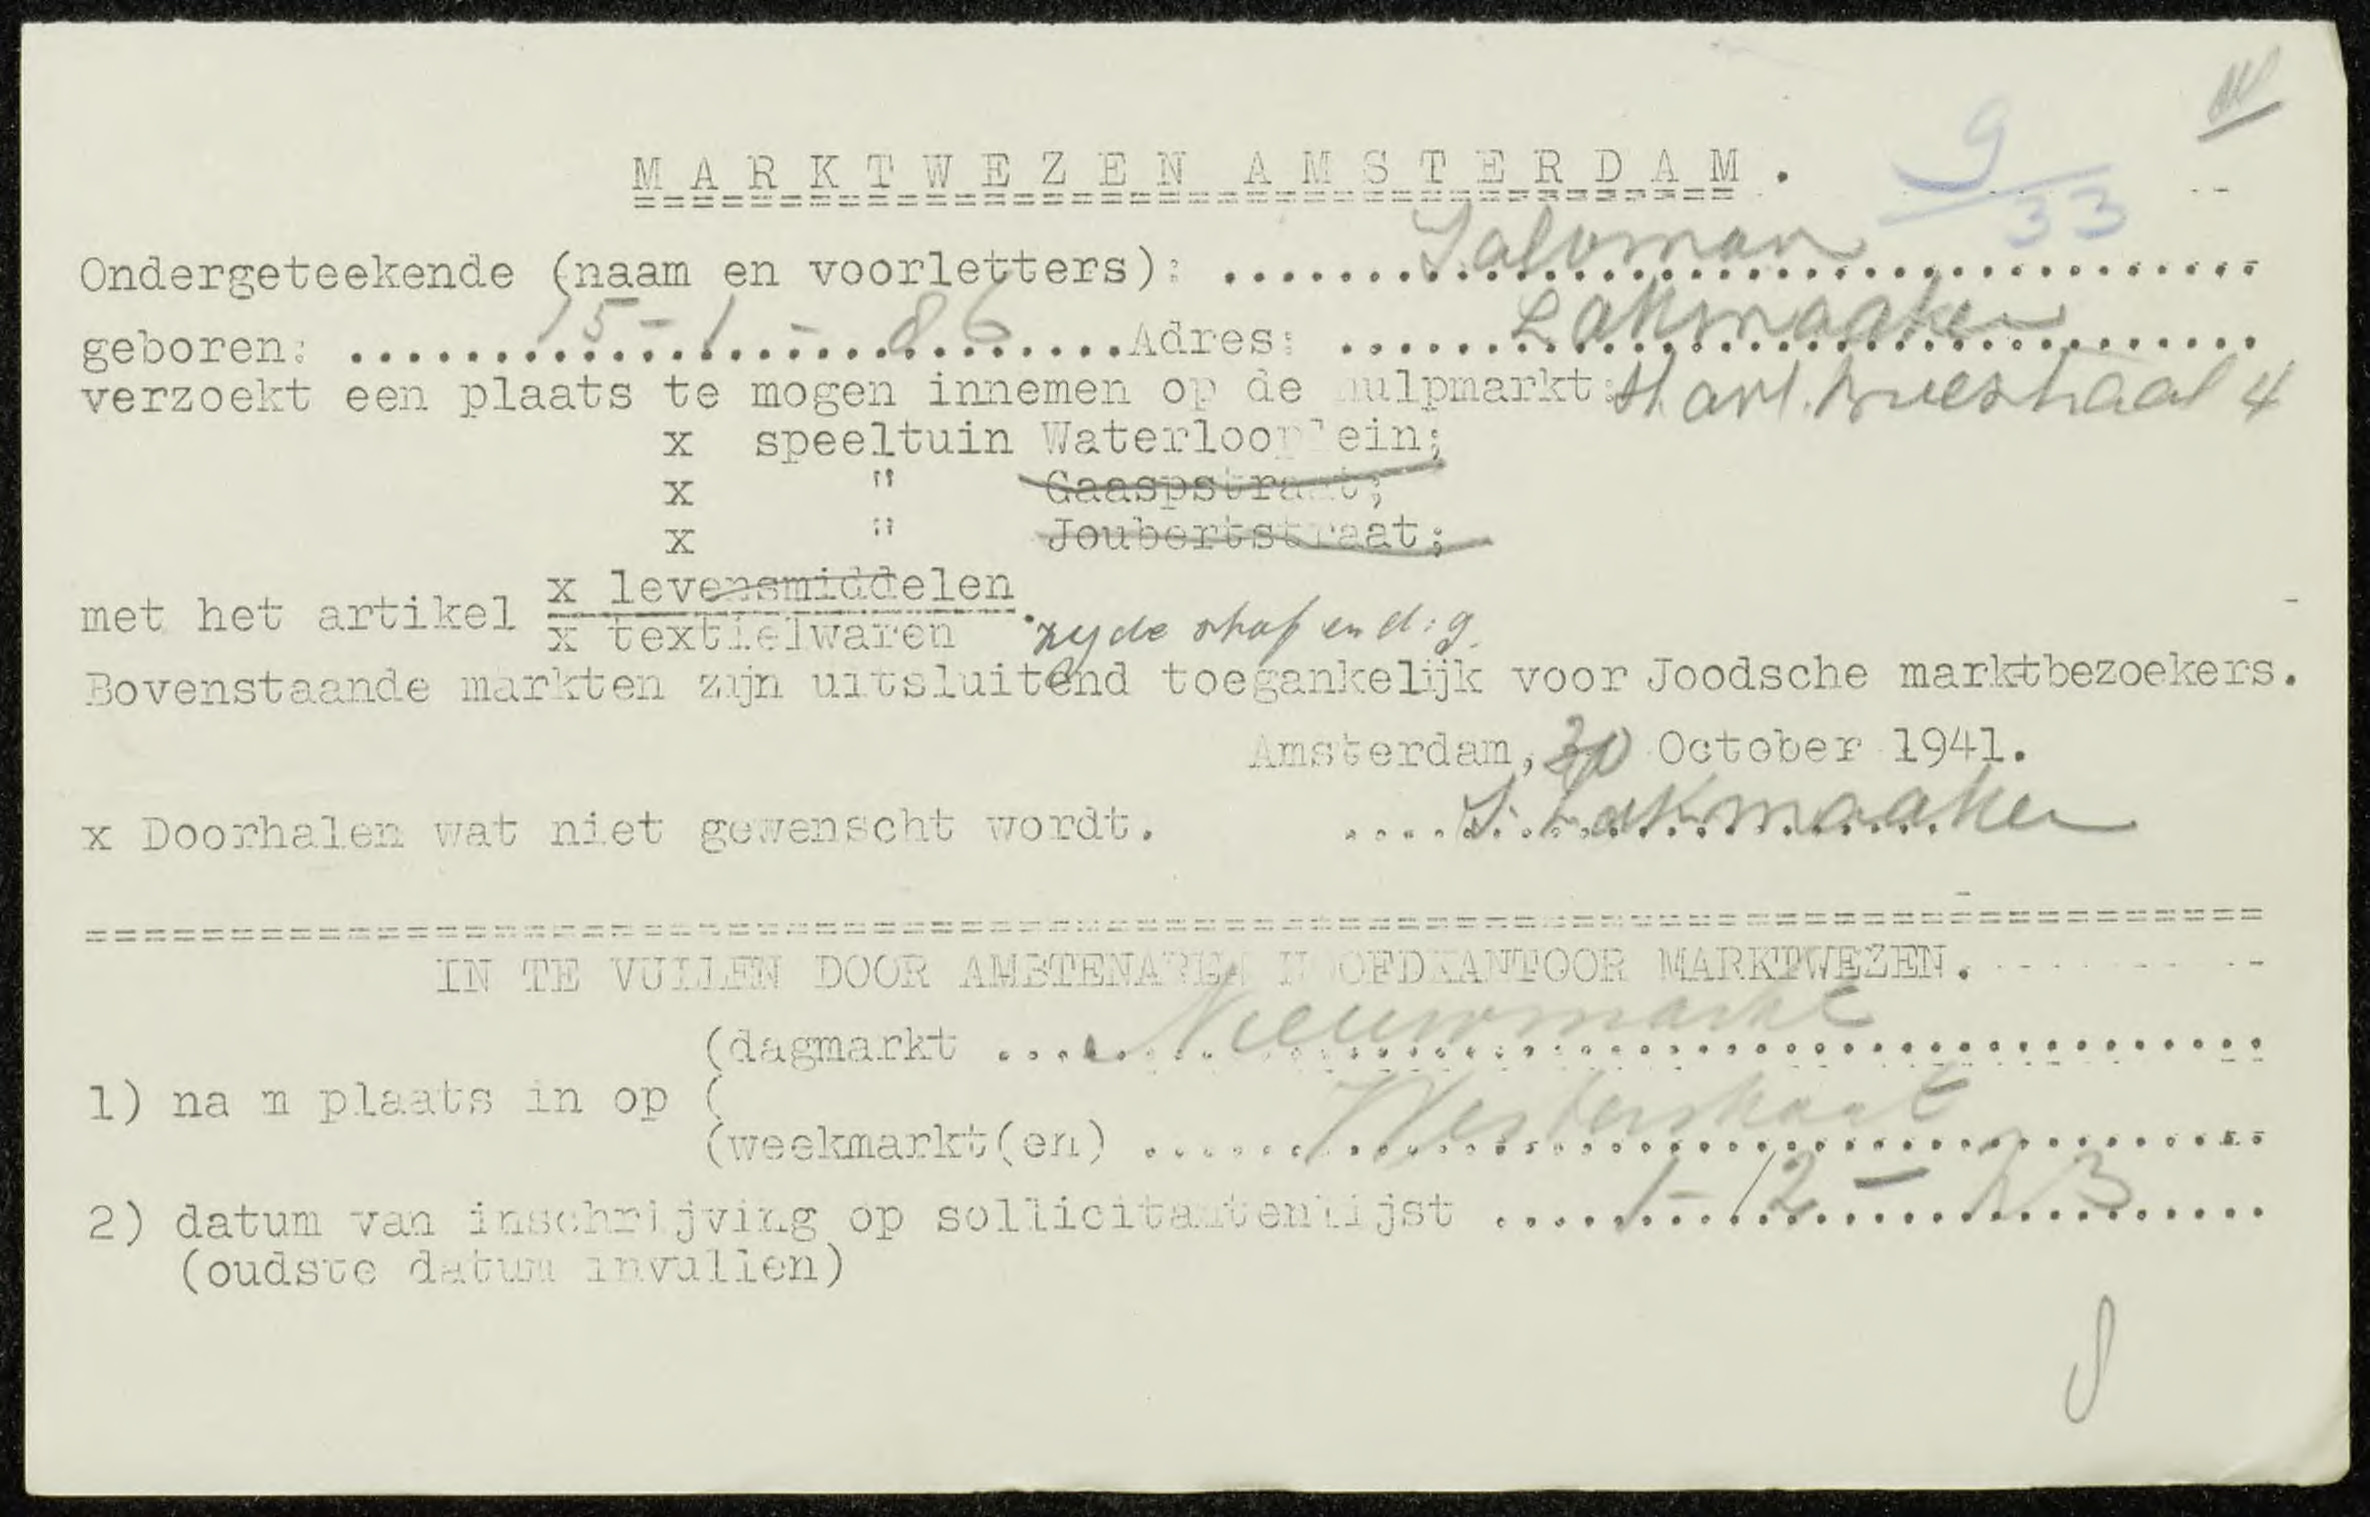 MARKTWEZEN AMSTERDAM.
9
33
Ondergeteekende (naam en voorletters): Saloman
geboren: 15-1-86 Adres: Lakmaaker
verzoekt een plaats te mogen innemen op de hulpmarkt: 4
x speeltuin Waterlooplein;
x " Gaaspstraat;
x " Joubertstraat;
x levensmiddelen
met het artikel
x textielwaren. zyde en d.g.
Bovenstaande markten zijn uitsluitend toegankelijk voor Joodsche marktbezoekers.
Amsterdam, October 1941.
x Doorhalen wat niet gewenscht wordt. S. Lakmaaker
IN TE VULLEN DOOR AMBTENAREN HOOFDKANTOOR MARKTWEZEN.
(dagmarkt Nieuwmarkt
1) nam plaats in op (
(weekmarkt(en) Westerstraat
2) datum van inschrijving op sollicitantenlijst 1-12-
(oudste datum invullen)